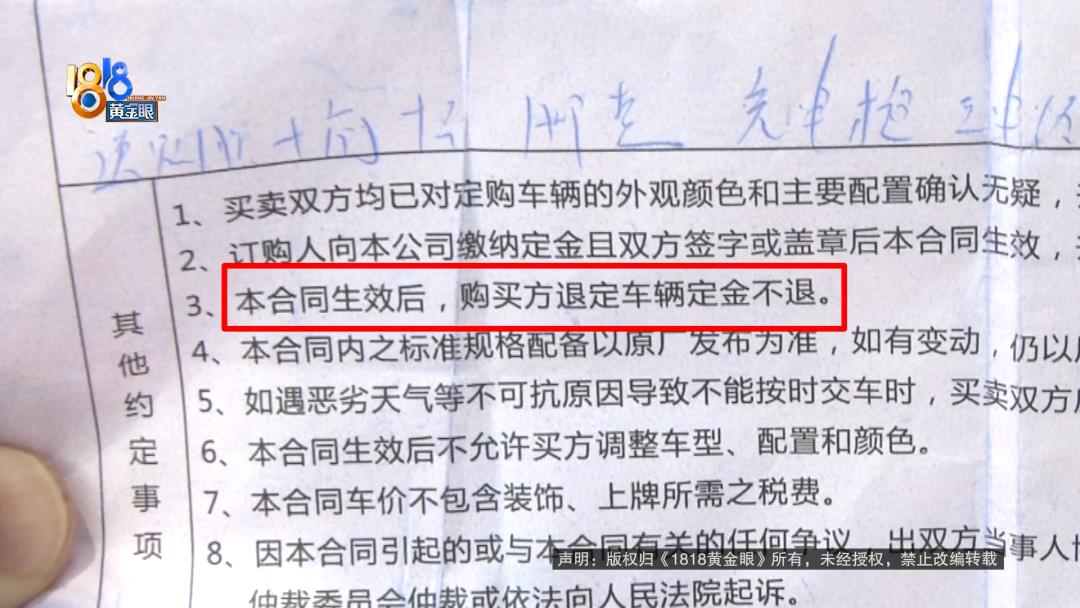 1818
黄金眼
充电枪
其他约定事项
1、买卖双方均已对定购车辆的外观颜色和主要配置确认无疑，
2、订购人向本公司缴纳定金且双方签字或盖章后本合同生效，
3、本合同生效后，购买方退定车辆定金不退。
4、本合同内之标准规格配备以原厂发布为准，如有变动，仍以
5、如遇恶劣天气等不可抗原因导致不能按时交车时，买卖双方
6、本合同生效后不允许买方调整车型、配置和颜色。
7、本合同车价不包含装饰、上牌所需之税费。
8、因本合同引起的或与本合同有关的任何争议，由双方当事人
仲裁委员会仲裁或依法向人民法院起诉。
声明：版权归《1818黄金眼》所有，未经授权，禁止改编转载